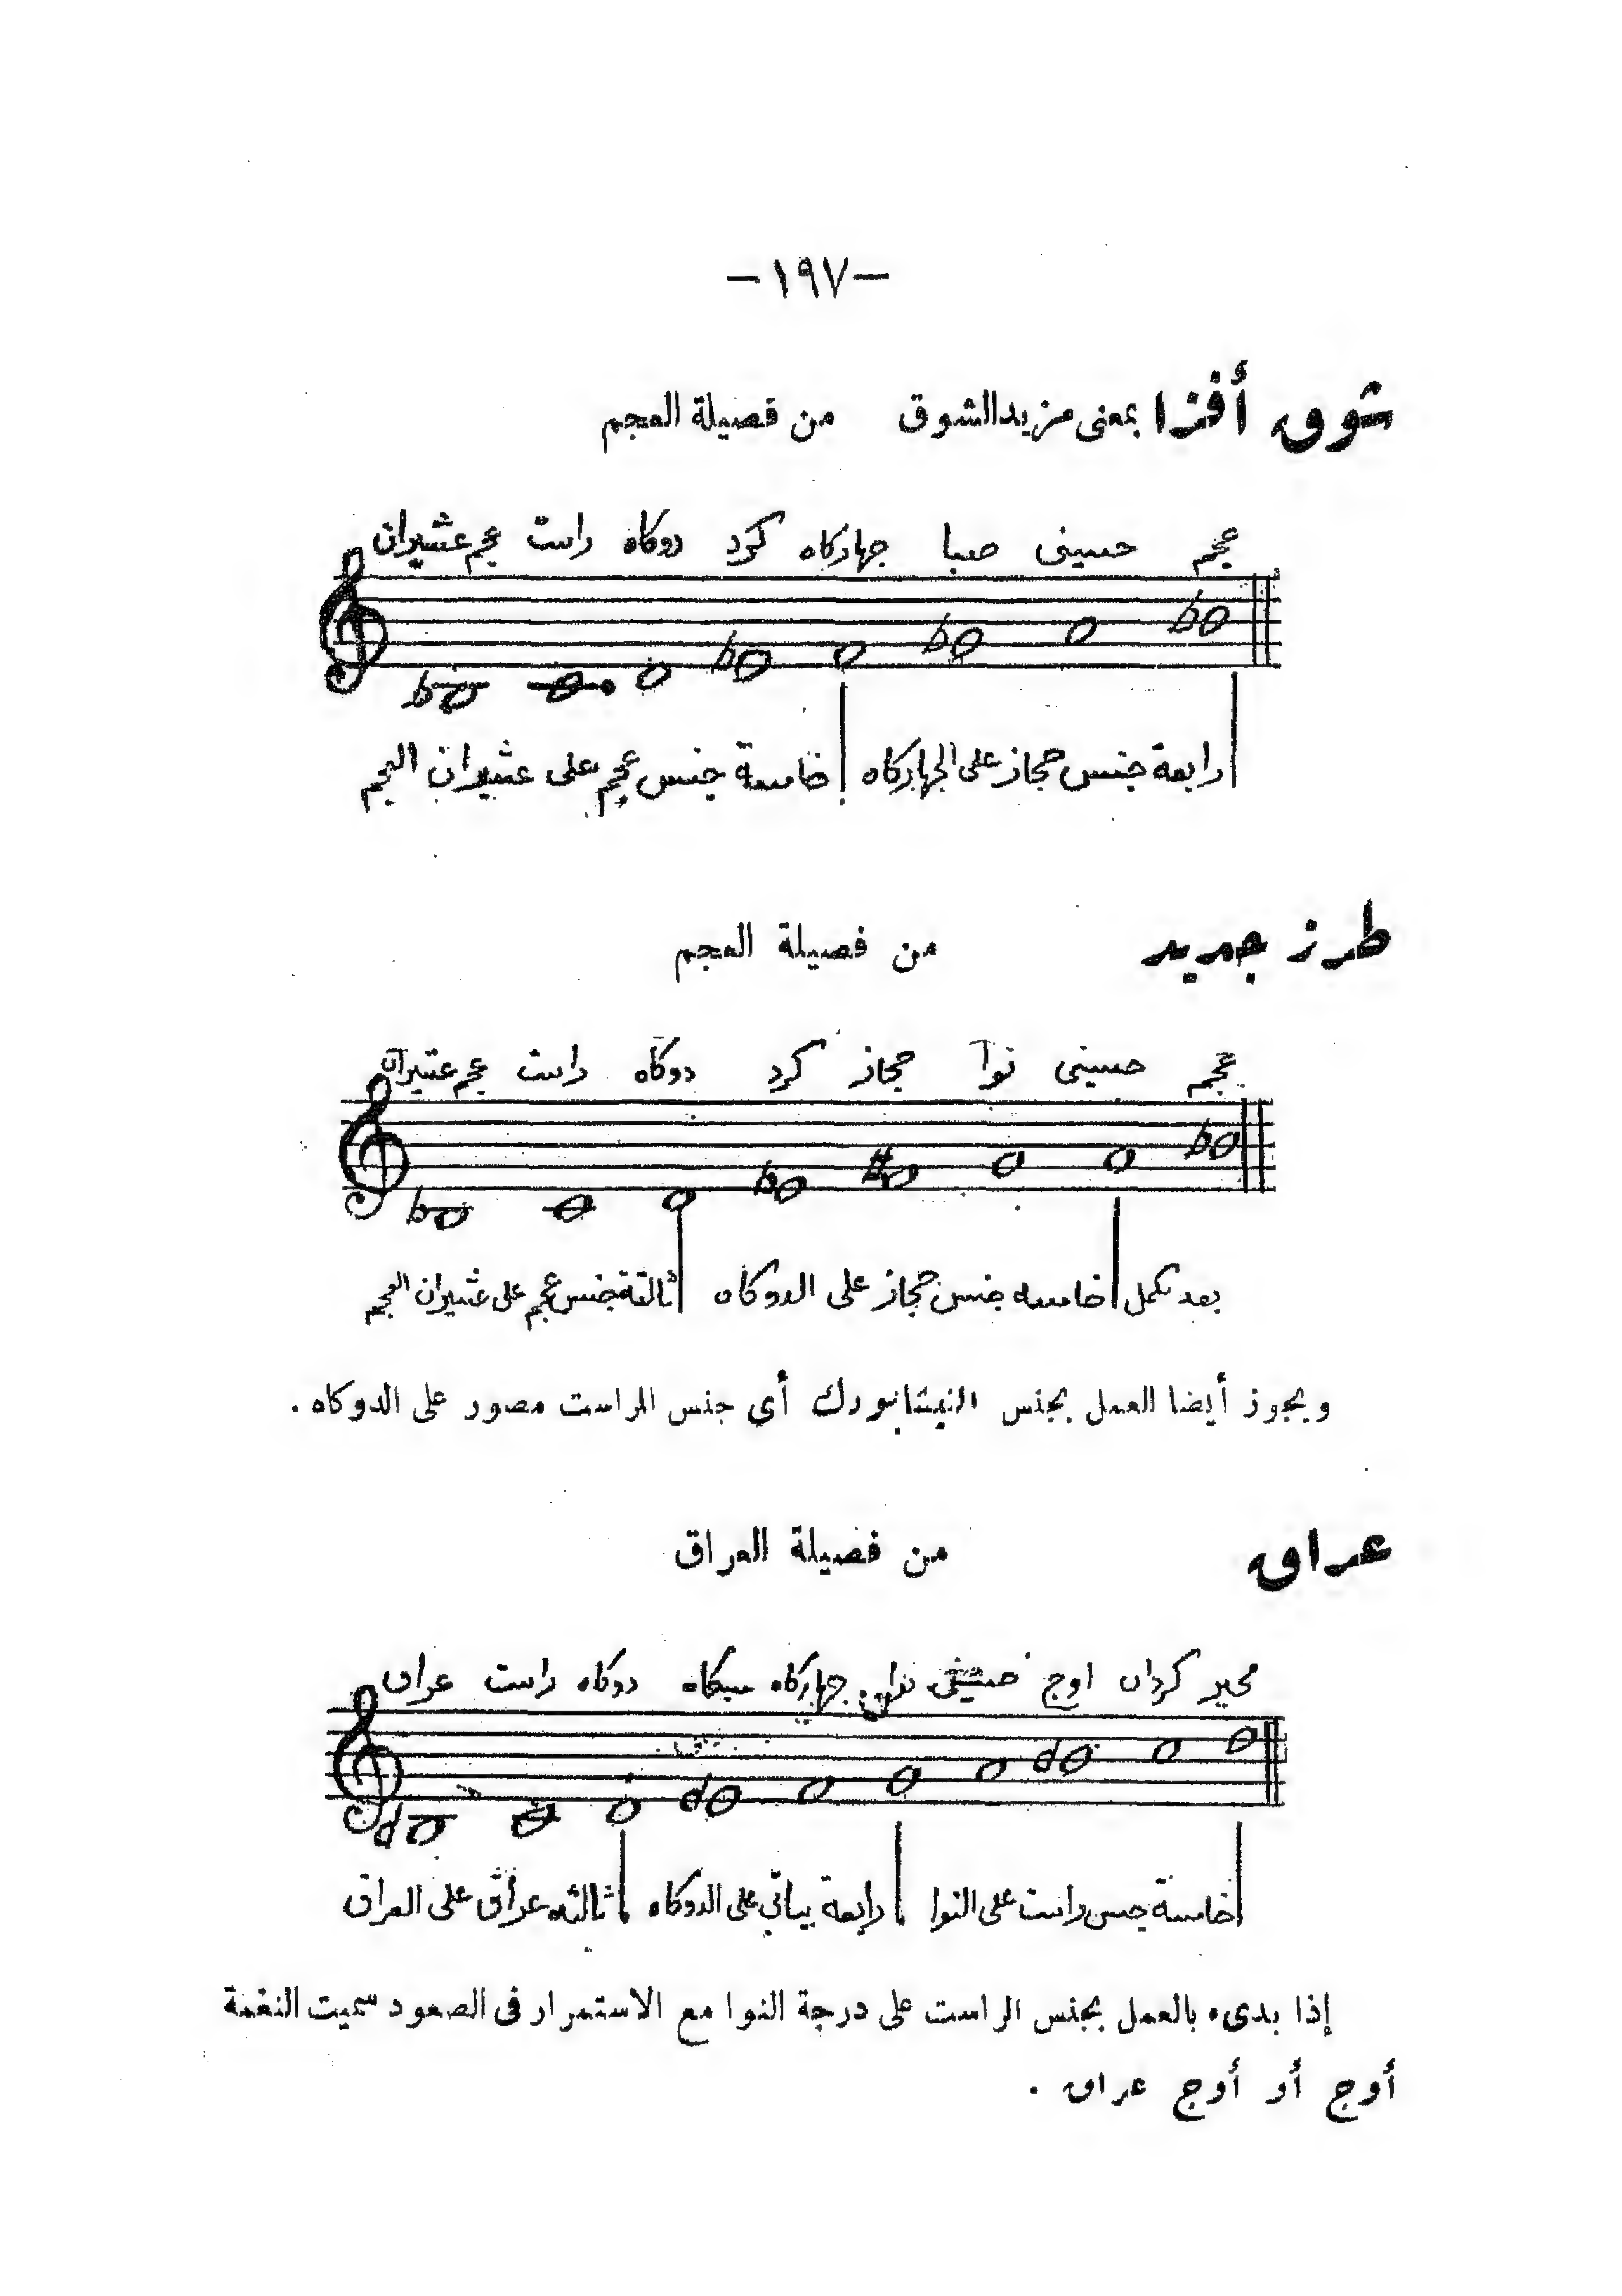 -١٩٧-
شوق أفزا بمعنى مزيد الشوق من فصيلة العجم
عجم حسينى صبا جهاركاه كرد دوكاه راست عجم عشيران
رابعة جنس حجاز على الجهاركاه خامسة جنس عجم على عشيران العجم
طرز جديد من فصيلة العجم
عجم حسينى نوا حجاز كرد دوكاه راست عجم عشيران
خامسه جنس حجاز على الدوكاه ثالثة جنس عجم على عشيران العجم
ويجوز أيضا العمل بجنس النيشابورك أي جنس الراست مصور على الدوكاه .
عراق من فصيلة العراق
محير كردان اوج حسينى نوا جهاركاه سيكاه دوكاه راست عراق
خامسة جنس راست على النوا رابعة بياتي على الدوكاه ثالثه عراق على العراق
إذا بدىء بالعمل بجنس الراست على درجة النوا مع الاستمرار فى الصعود سميت النغمة
أوج أو أوج عراق .